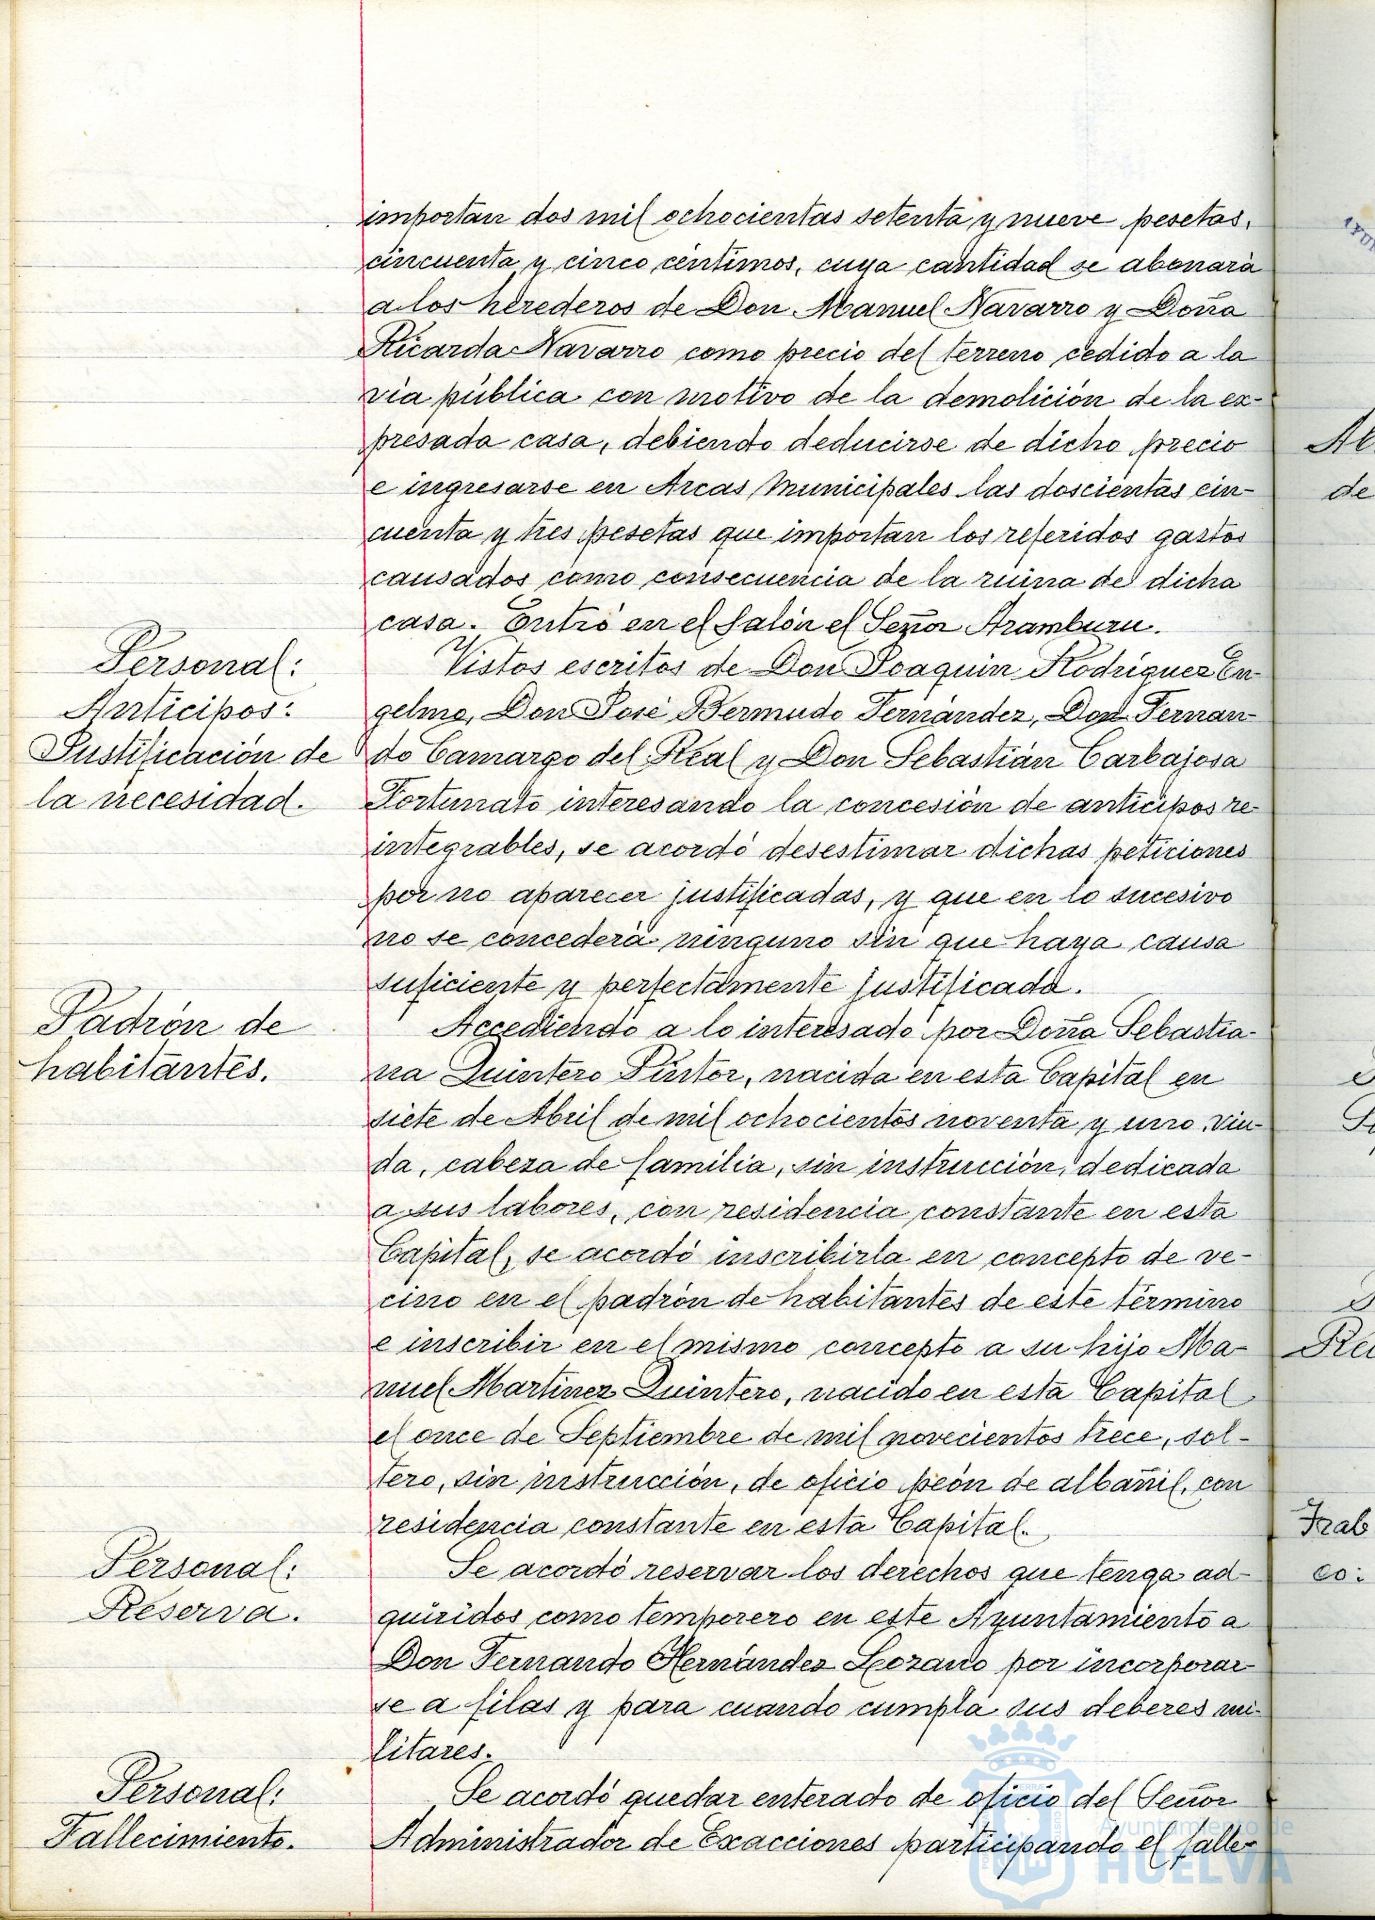 importan dos mil ochocientas setenta y nueve pesetas,
cincuenta y cinco céntimos, cuya cantidad se abonará
a los herederos de Don Manuel Navarro y Doña
Ricarda Navarro como precio del terreno cedido a la
vía pública con motivo de la demolición de la ex-
presada casa, debiendo deducirse de dicho precio
e ingresarse en Arcas Municipales las doscientas cin-
cuenta y tres pesetas que importan los referidos gastos
causados como consecuencia de la ruina de dicha
casa. Entró en el Salón el Señor Aramburu.
Personal:
Anticipos:
Justificación de
la necesidad.
Vistos escritos de Don Joaquín Rodríguez En-
gelmo, Don José Bermudo Fernández, Don Fernan-
do Camargo del Real y Don Sebastián Carbajosa
Fortunato interesando la concesión de anticipos re-
integrables, se acordó desestimar dichas peticiones
por no aparecer justificadas, y que en lo sucesivo
no se concederá ninguno sin que haya causa
suficiente y perfectamente justificada.
Padrón de
habitantes.
Accediendo a lo interesado por Doña Sebastia-
na Quintero Pintor, nacida en esta Capital en
siete de Abril de mil ochocientos noventa y uno, viu-
da, cabeza de familia, sin instrucción, dedicada
a sus labores, con residencia constante en esta
Capital, se acordó inscribirla en concepto de ve-
cino en el padrón de habitantes de este término
e inscribir en el mismo concepto a su hijo Ma-
nuel Martínez Quintero, nacido en esta Capital
el once de Septiembre de mil novecientos trece, sol-
tero, sin instrucción, de oficio peón de albañil, con
residencia constante en esta Capital.
Personal:
Reserva.
Se acordó reservar los derechos que tenga ad-
quiridos como temporero en este Ayuntamiento a
Don Fernando Hernández Lozano por incorporar-
se a filas y para cuando cumpla sus deberes mi-
litares.
Personal:
Fallecimiento.
Se acordó quedar enterado de oficio del Señor
Administrador de Exacciones participando el falle-
Ayuntamiento de
HUELVA
de
Trab
co: